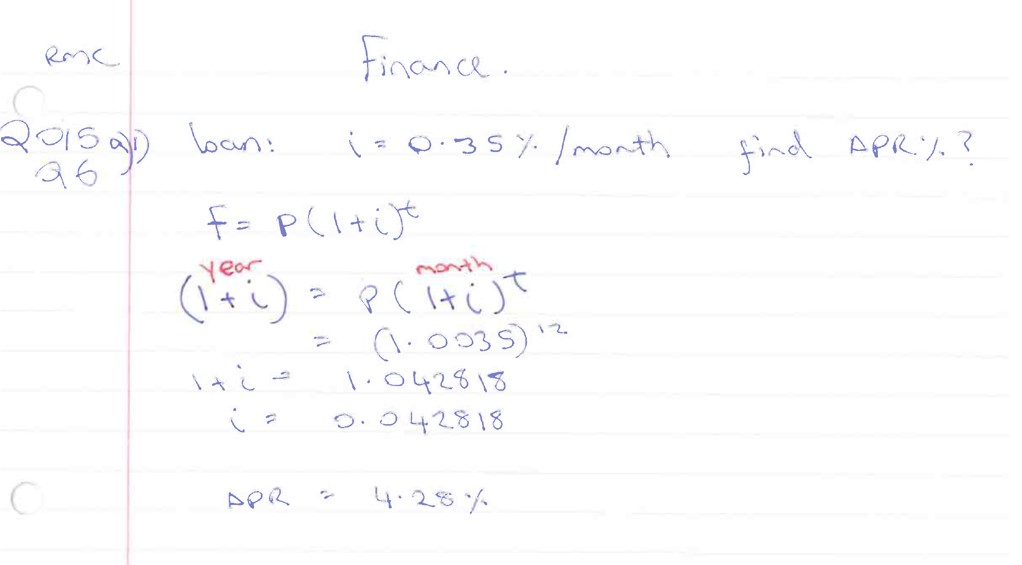 RMC
Finance.
2015 a)i) loan: i = 0.35% /month find APR%?
Q6
F = P(1+i)^t
year month
(1+i) = P(1+i)^t
= (1.0035)^12
1+i = 1.042818
i = 0.042818
APR = 4.28%